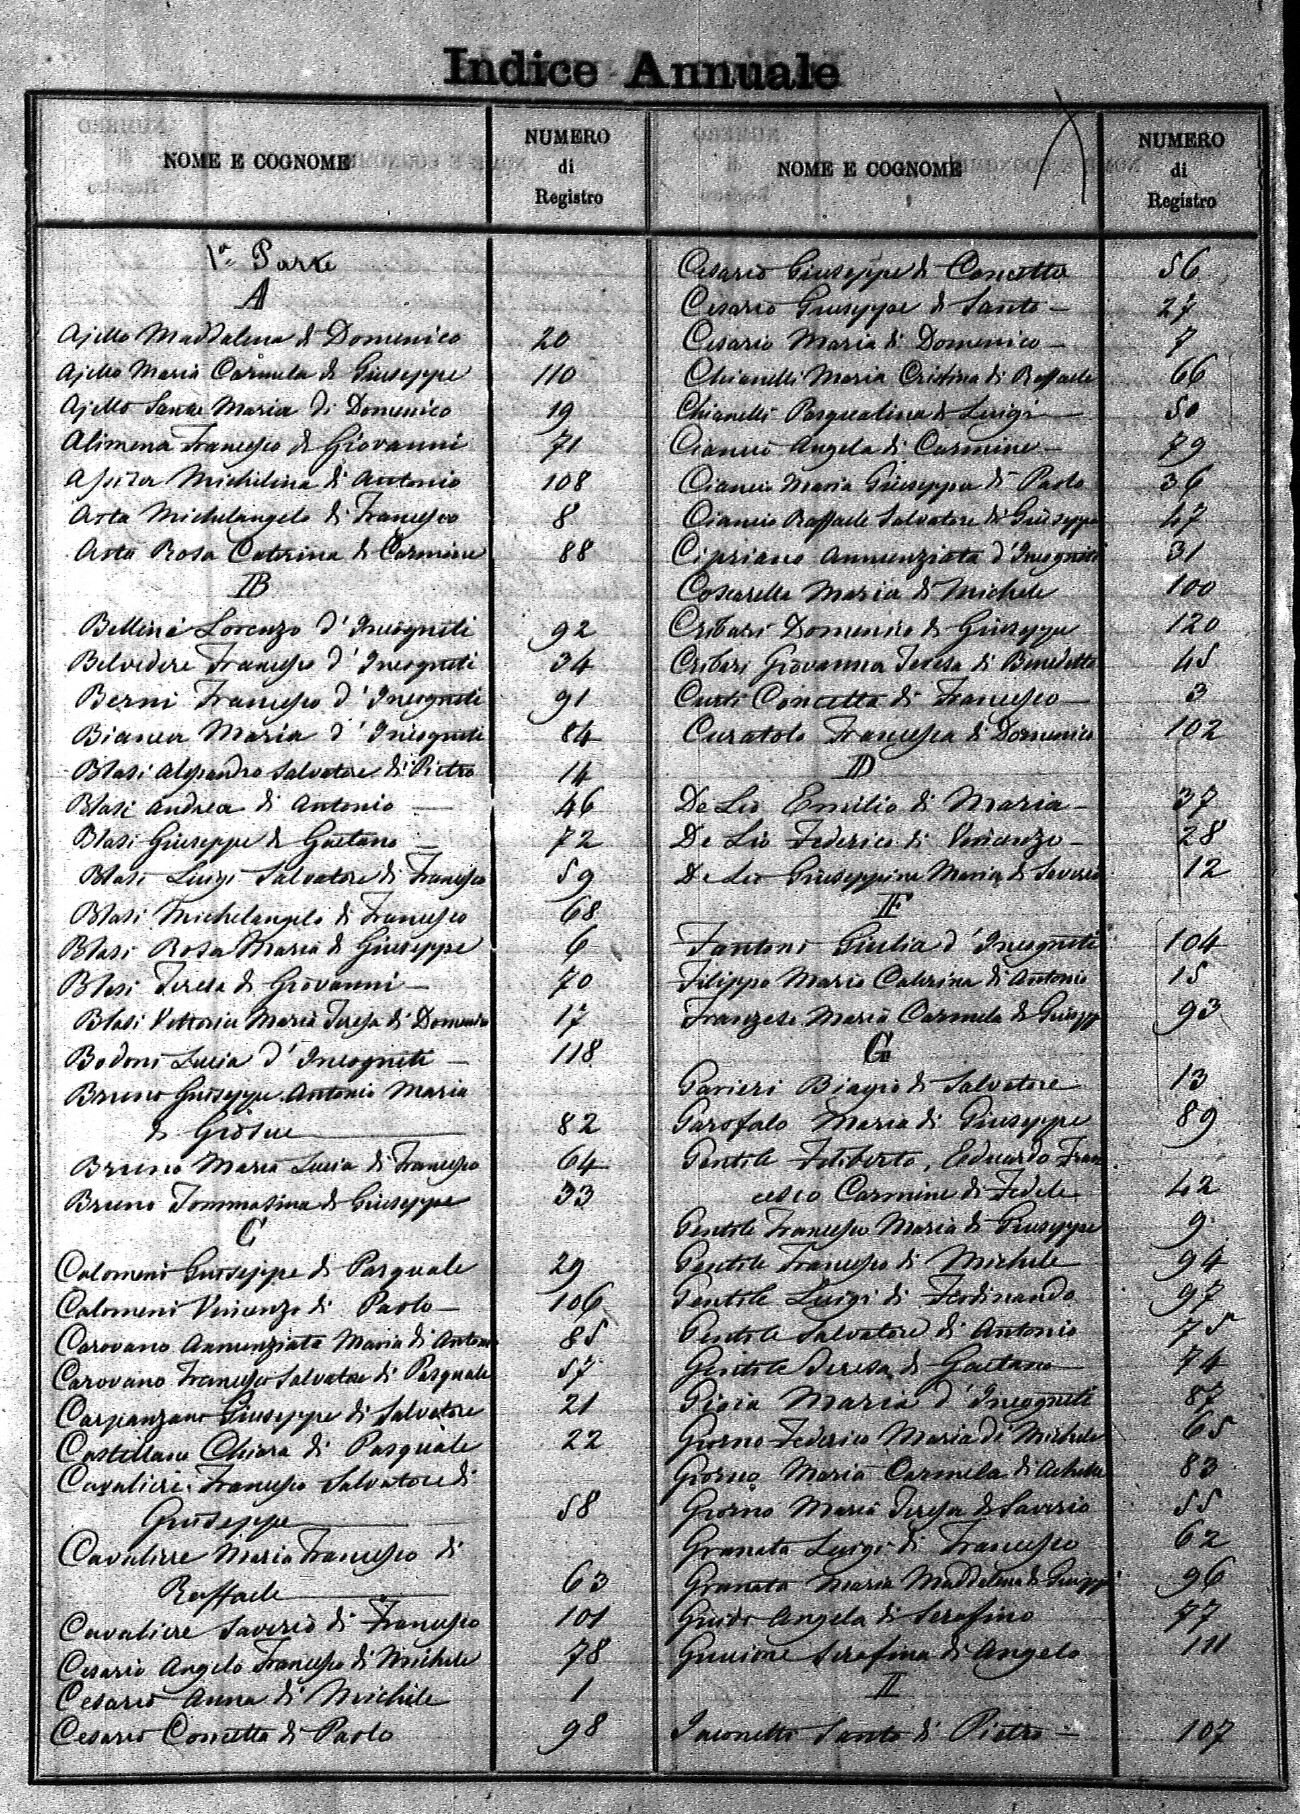 Indice Annuale
NOME E COGNOME
NUMERO
di
Registro
1ª Parte
A
Ajello Maddalena di Domenico 20
Ajello Maria Carmela di Giuseppe 110
Ajello Sante Maria di Domenico 19
Alimena Francesco di Giovanni 71
Michilina di Antonio 108
Asta Michelangelo di Francesco 8
Asta Rosa Caterina di Carmine 88
B
Bellini Lorenzo d'Incogniti 92
Belvedere Francesco d'Incogniti 34
Berni Francesco d'Incogniti 91
Bianca Maria d'Incogniti 84
Blasi Alessandro Salvatore di Pietro 14
Blasi Andrea di Antonio 46
Blasi Giuseppe di Gaetano 72
Blasi Luigi Salvatore di Francesco 59
Blasi Michelangelo di Francesco 68
Blasi Rosa Maria di Giuseppe 6
Blasi Teresa di Giovanni 70
Blasi Vittoria Maria Teresa di Domenico 17
Bodoni Lucia d'Incogniti 118
Bruno Giuseppe Antonio Maria
di Giosue 82
Bruno Maria Lucia di Francesco 64
Bruno Tommasina di Giuseppe 33
C
Calomeni Giuseppe di Pasquale 29
Calomeni Vincenzo di Paolo 106
Carovano Annunziata Maria di Antonio 85
Carovano Francesco Salvatore di Pasquale 57
Carpanzano Giuseppe di Salvatore 21
Castellano Chiara di Pasquale 22
Cavaliere Francesco Salvatore di
Giuseppe 58
Cavaliere Maria Francesca di
Raffaele 63
Cavaliere Saverio di Francesco 101
Cesario Angelo Francesco di Michele 78
Cesario Anna di Michele 1
Cesario Concetta di Paolo 98
NOME E COGNOME
NUMERO
di
Registro
Cesario Giuseppe di Concetta 56
Cesario Giuseppe di Santo 27
Cesario Maria di Domenico 7
Chianelli Maria Cristina di Raffaele 66
Chianelli Pasqualina di Luigi 50
Ciancio Angela di Carmine 79
Ciancio Maria Giuseppa di Paolo 36
Ciancio Raffaele Salvatore di Giuseppe 47
Cipriano Annunziata d'Incogniti 31
Coscarella Maria di Michele 100
Cribari Domenico di Giuseppe 120
Cribari Giovanna Teresa di Benedetto 45
Curti Concetta di Francesco 3
Curatolo Francesca di Domenico 102
D
De Lio Emilio di Maria 37
De Lio Federico di Vincenzo 28
De Lio Giuseppina Maria di Saverio 12
F
Fantoni Giulia d'Incogniti 104
Filippo Maria Caterina di Antonio 15
Franzese Maria Carmela di Giusepp 93
G
Garieri Biagio di Salvatore 13
Garofalo Maria di Giuseppe 89
Gentile Filiberto, Eduardo Fran
cesco Carmine di Fedele 42
Gentile Francesco Maria di Giuseppe 9
Gentile Francesco di Michele 94
Gentile Luigi di Ferdinando 97
Gentile Salvatore di Antonio 75
Gentile Teresa di Gaetano 74
Gioia Maria d'Incogniti 87
Giorno Federico Maria di Michele 65
Giorno Maria Carmela di Achille 83
Giorno Maria Teresa di Saverio 55
Granata Luigi di Francesco 62
Granata Maria Maddalena di Giuseppe 96
Guido Angela di Serafino 77
Guccione Serafina di Angelo 111
I
Iaconetti Santo di Pietro 107